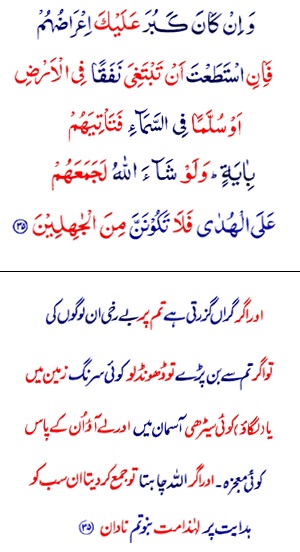 وَ اِنْ كَانَ كَبُرَ عَلَيْكَ اِعْرَاضُهُمْ
فَاِنِ اسْتَطَعْتَ اَنْ تَبْتَغِیَ نَفَقًا فِی الْاَرْضِ
اَوْ سُلَّمًا فِی السَّمَآءِ فَتَاْتِیَهُمْ
بِاٰیَةٍ ؕ وَ لَوْ شَآءَ اللّٰهُ لَجَمَعَهُمْ
عَلَی الْهُدٰی فَلَا تَكُوْنَنَّ مِنَ الْجٰهِلِیْنَ ﴿۳۵﴾
اور اگر گراں گزرتی ہے تم پر بے رخی ان لوگوں کی
تو اگر تم سے بن پڑے تو ڈھونڈ لو کوئی سرنگ زمین میں
یا (لگاؤ) کوئی سیڑھی آسمان میں اور لے آؤ اُن کے پاس
کوئی معجزہ۔ اور اگر اللہ چاہتا تو جمع کردیتا ان سب کو
ہدایت پر لہٰذا مت بنو تم نادان ﴿۳۵﴾